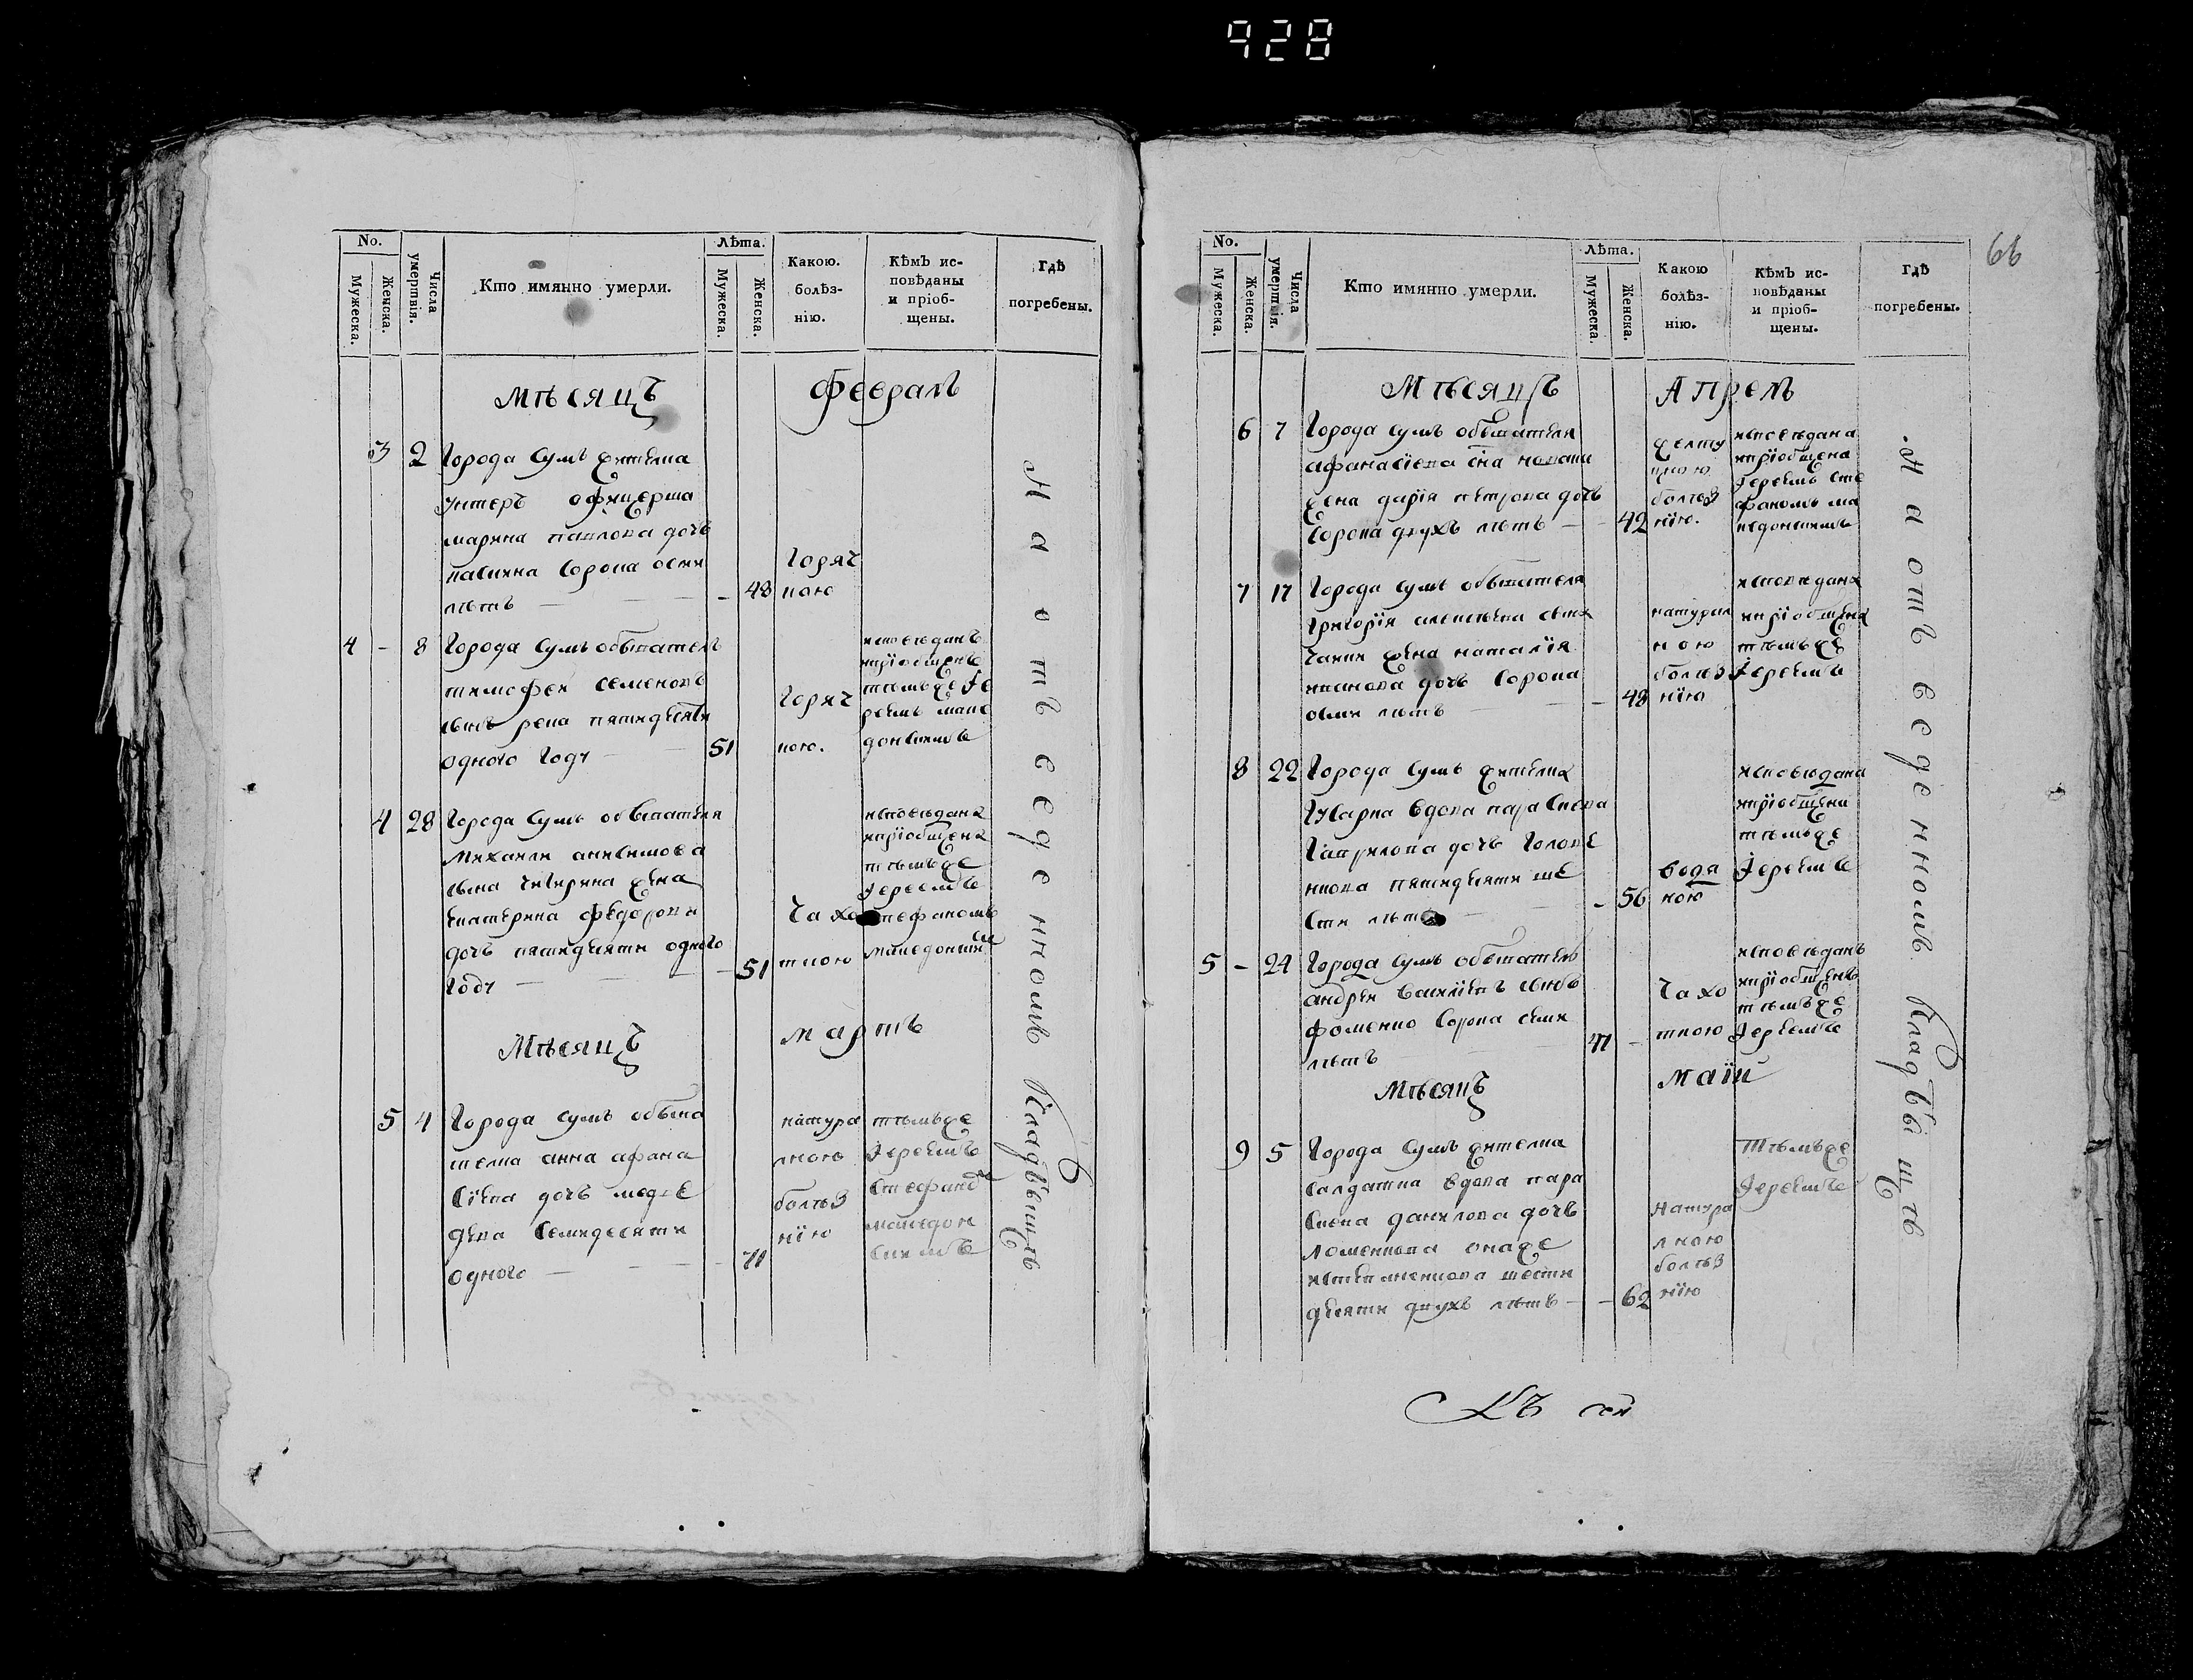 928
No.
Мужеска.
Женска.
Числа умертвія.
Кто имянно умерли.
Лѣта.
Мужеска.
Женска.
Какою. болѣз-нію.
Кѣмъ ис-повѣданы и пріоб-щены.
Гдѣ погребены.
Мѣсяцъ Февраль
3 2 Города Сумъ жителка
унтеръ офицерша
марина павлова дочь
сорока осми
лѣтъ — 48
Горяч
кою
4 - 8 Города Сумъ обыватель
тимофей семеновъ
сынъ река пятидесяти
одного году 51
Горяч
кою.
исповѣданъ
и пріобщенъ
тѣмъ же Іе
реемъ маке
донскимъ
4 28 Города Сумъ обывателя
михаила анисимова
сына жена
екатерина федорова
дочь пятидесяти одного
году — 51
Чахо
ткою
исповѣдана
и пріобщена
тѣмъ же
Іереемъ
стефаномъ
македонским
Мѣсяцъ мартъ
5 4 Города Сумъ обыва
телка анна афана
сіева дочь медве
дева семидесяти
одного — 71
натура
лною
болѣз
нію
тѣмъ же
Іереемъ
стефано
македон
скимъ
На отведенномъ кладбыщѣ
66
No.
Мужеска.
Женска.
Числа умертвія.
Кто имянно умерли.
Лѣта.
Мужеска.
Женска.
Какою болѣз-нію.
Кѣмъ ис-повѣданы и пріоб-щены.
Гдѣ погребены.
Мѣсяцъ Апрель
6 7 Города Сумъ обывателя
афанасіева сна
жена дарія петрова дочь
сорока двухъ лѣтъ — 42
желту
шною
болѣз
нію.
исповѣдана
и пріобщена
Іереемъ сте
фаномъ ма
кедонскимъ
7 17 Города Сумъ обывателя
григорія алексѣева
жена наталія
иванова дочь сорока
осми лѣтъ — 48
натурал
ною
болѣз
нію
исповѣдана
и пріобщена
тѣмъ же
Іереемъ
8 22 Города Сумъ жителка
гусарка вдова параскева
гаврилова дочь голове
нкова пятидесяти ше
сти лѣтъ — 56
водя
ною
исповѣдана
и пріобщена
тѣмъ же
Іереемъ
5 - 24 Города Сумъ обыватель
андрей василіевъ сынъ
фоменко сорока семи
лѣтъ 47 -
Чахо
ткою
исповѣданъ
и пріобщенъ
тѣмъ же
Іереемъ
Мѣсяцъ маій
9 5 Города Сумъ жителка
салдатка вдова пара
скева данилова дочь
она же
шести
десяти двухъ лѣтъ — 62
натура
лною
болѣз
нію
Тѣмъ же
Іереемъ
На отведенномъ кладбыщѣ
Къ сей